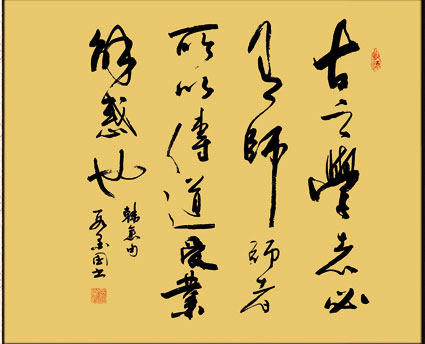 古之學者必
有師師者
所以傳道受業
解惑也
韓愈句
国书